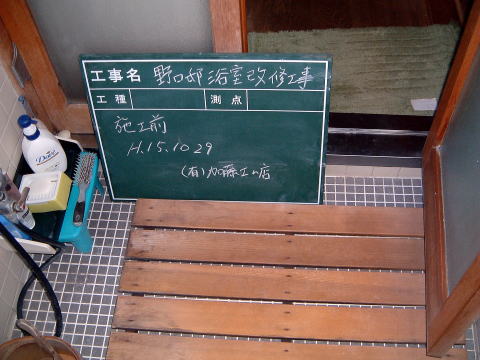 工事名 野口邸浴室改修工事
工種 測点
施工前
H.15.10 29
(有)加藤工ム店
Dove